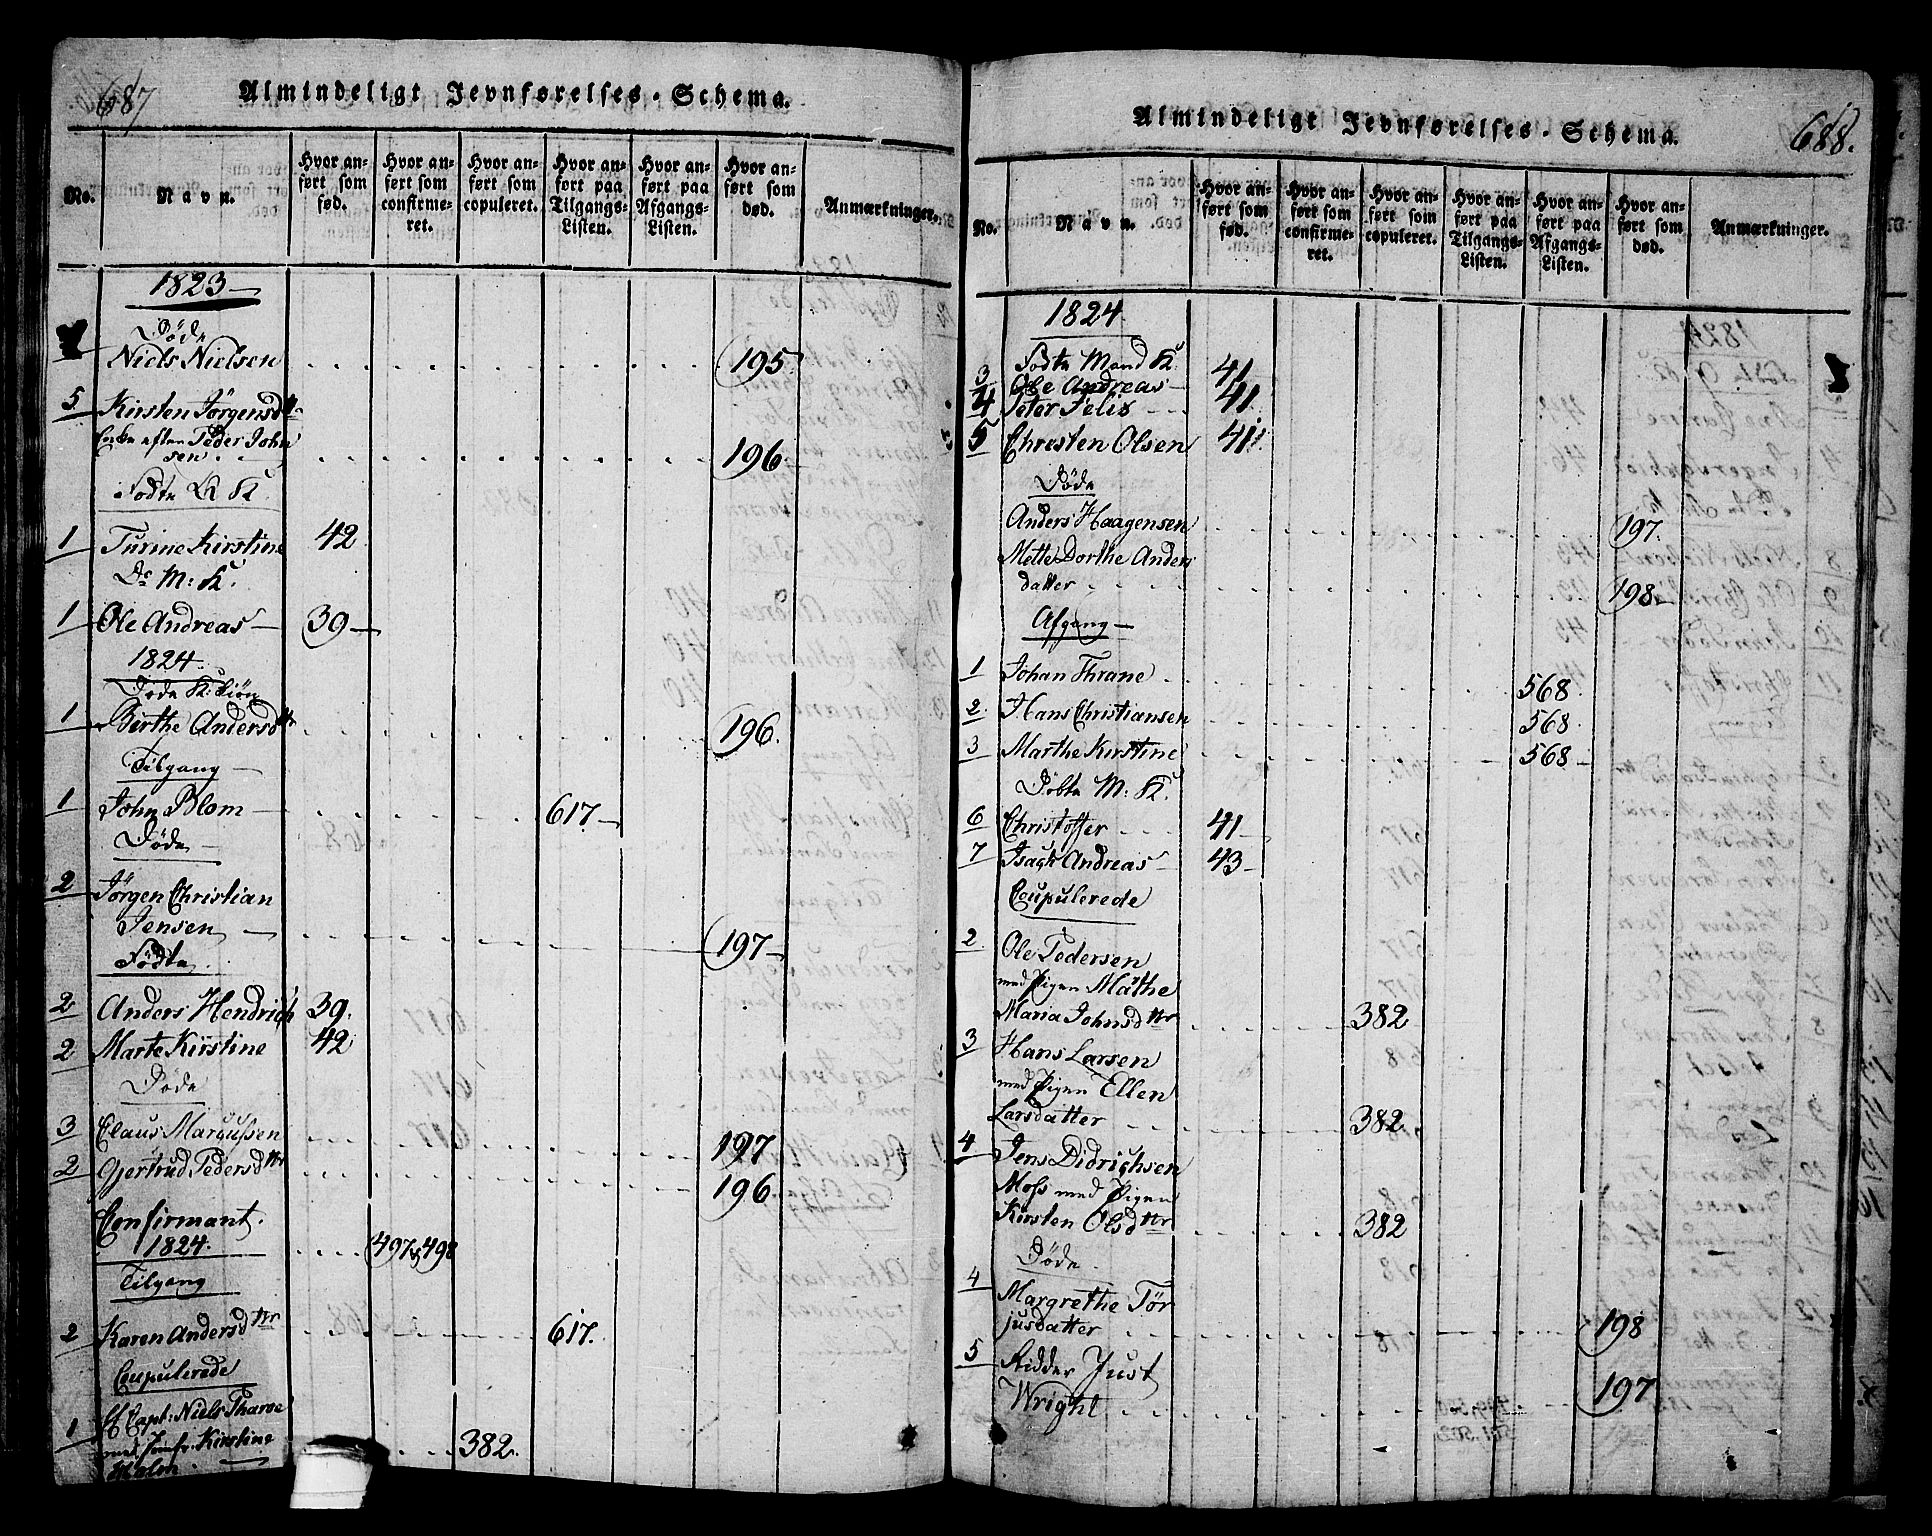 687
Almindeligt Jevnførelses-Schema.
No.
Navn.
Hvor anført som fød.
Hvor anført som confirmeret.
Hvor anført som copuleret.
Hvor anført paa Tilgangs-Listen.
Hvor anført paa Afgangs-Listen.
Hvor anført som død.
Anmærkninger.
1823
Døde
Niels Nielsen 195
5 Kirsten Jørgensdtr
Enke efter Peder John
sen 196
Fødte K
1 Turine Kirstine 42
Do M: K.
1 Ole Andreas 39
1824.
Døde K: Kiøn
1 Birthe Andersdtr 196
Tilgang
1 John Blom 617
Døde
2 Jørgen Christian
Jensen 197
Fødte
2 Anders Hendrich 39.
2 Marte Kirstine 42
Døde
3 Claus Marqussen 197
2 Gjertrud Pedersdtr 196
Confirmant.
1824. 497 & 498
Tilgang
2 Karen Andersdtr 617.
Coupulerede
1 Capt: Niels Tharve
med Jomfr. Kirstine
382
688.
Almindeligt Jevnførelses-Schema.
No.
Navn.
Hvor anført som fød.
Hvor anført som confirmeret.
Hvor anført som copuleret.
Hvor anført paa Tilgangs-Listen.
Hvor anført paa Afgangs-Listen.
Hvor anført som død.
Anmærkninger.
1824
Fødte Mand K
3 Ole Andreas 41
4 Peter Felix 41
5 Christen Olsen 41
Døde
Anders Haagensen 197.
Mette Dorthe Anders
datter 198
Afgang
1 Johan Thrane 568
2 Hans Christiansen 568
3 Marthe Kirstine 568
Døbte M: K.
6 Christoffer 41
7 Isach Andreas 43
Coupulerede
2 Ole Pedersen
med Pigen Marthe
Maria Johnsdtr 382
3 Hans Larsen
med Pigen Ellen
Larsdatter 382
4 Jens Didrichsen
Moss med Pigen
Kirsten Olsdtr 382
Døde
4 Margrethe Tør
jusdatter 198
5 Ridder Just
Wright 197